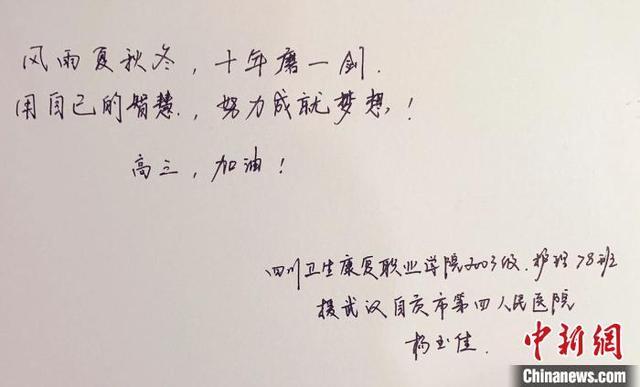 风雨夏秋冬，十年磨一剑．
用自己的智慧，努力成就梦想！
高三，加油！
四川卫生康复职业学院2003级．护理78班
援武汉自贡市第四人民医院
杨玉佳．
中新網
Chinanews.com